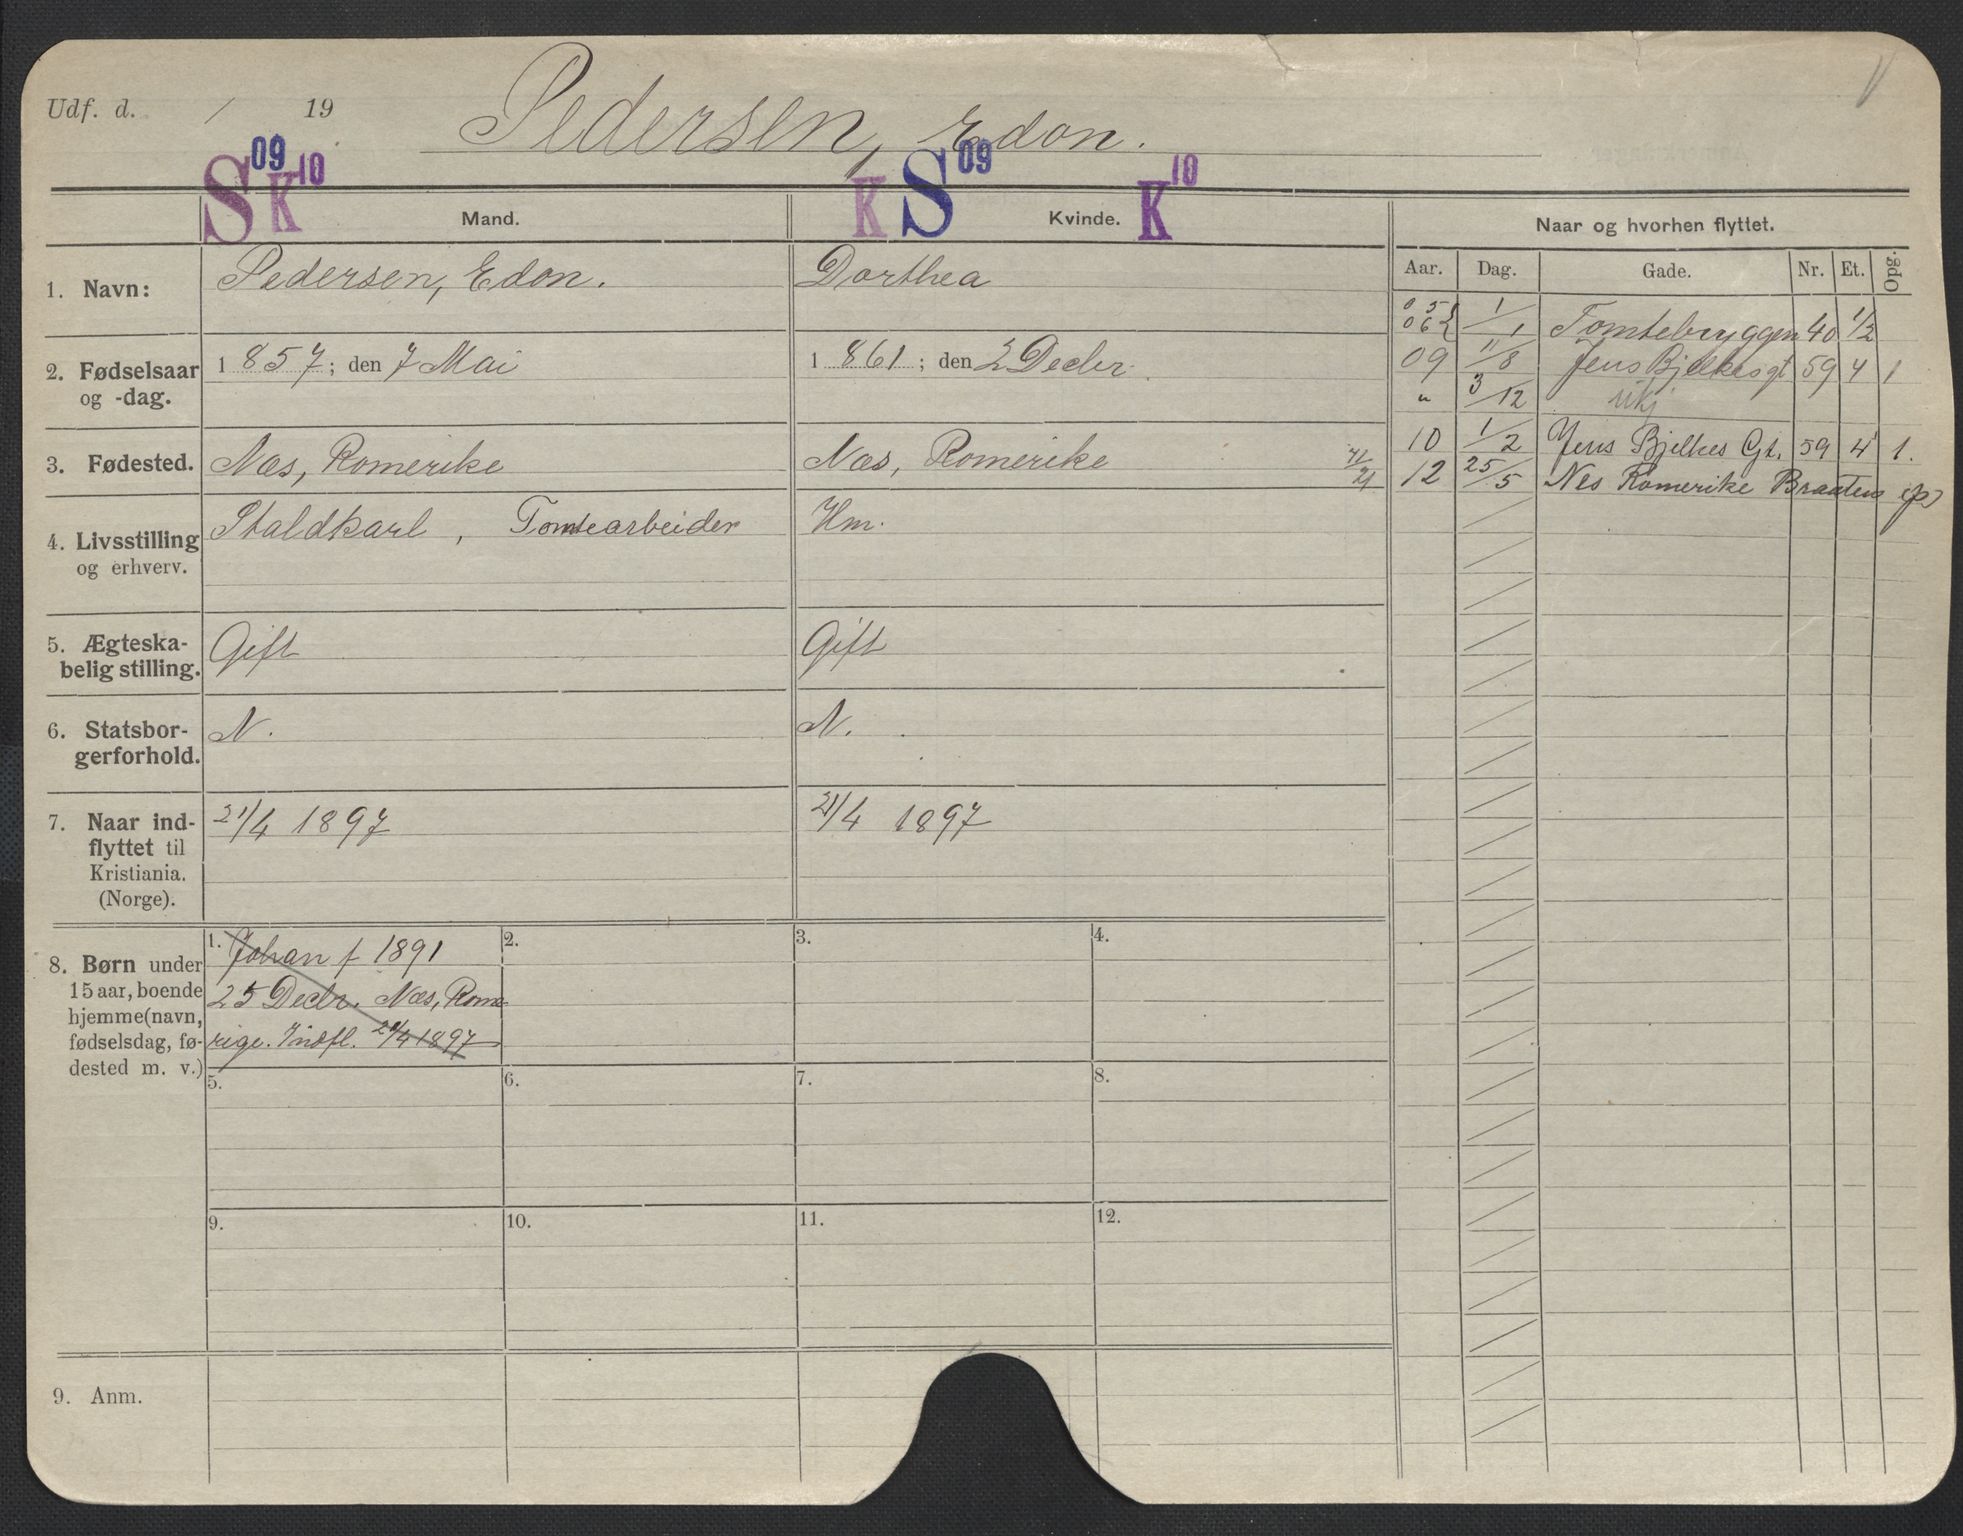 Udf. d. / 19
Pedersen, Edon.
S 09 K 10
K S 09 K 10
Mand.
Kvinde.
Naar og hvorhen flyttet.
Aar. Dag. Gade. Nr. Et. Opg.
1. Navn: Pedersen, Edon. Dorthea
2. Fødselsaar og -dag. 1857; den 7 Mai 1861; den 2 Decbr.
3. Fødested. Næs, Romerike Næs, Romerike
4. Livsstilling og erhverv. Staldkarl, Tomtearbeider Hm.
5. Ægteskabelig stilling. Gift Gift
6. Statsborgerforhold. N. N.
7. Naar indflyttet til Kristiania. (Norge). 21/4 1897 21/4 1897
8. Børn under 15 aar, boende hjemme (navn, fødselsdag, fødested m. v.)
1. Johan f 1891
25 Decbr. Næs, Rome
rige. Indfl. 21/4 1897
2.
3.
4.
5.
6.
7.
8.
9.
10.
11.
12.
9. Anm.
05
06 1/1 Tomtebryggen 40 1/2
09 11/8 Jens Bjelkesgt 59 4 1
" 3/12 ukj
10 1/2 Jens Bjelkes Gt. 59 4 1.
12 25/5 Nes Romerike Braaten